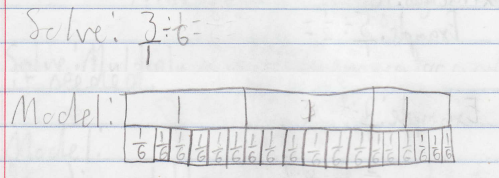 Solve: 3/1 ÷ 6 =
Model: 1 1 1
1/6 1/6 1/6 1/6 1/6 1/6 1/6 1/6 1/6 1/6 1/6 1/6 1/6 1/6 1/6 1/6 1/6